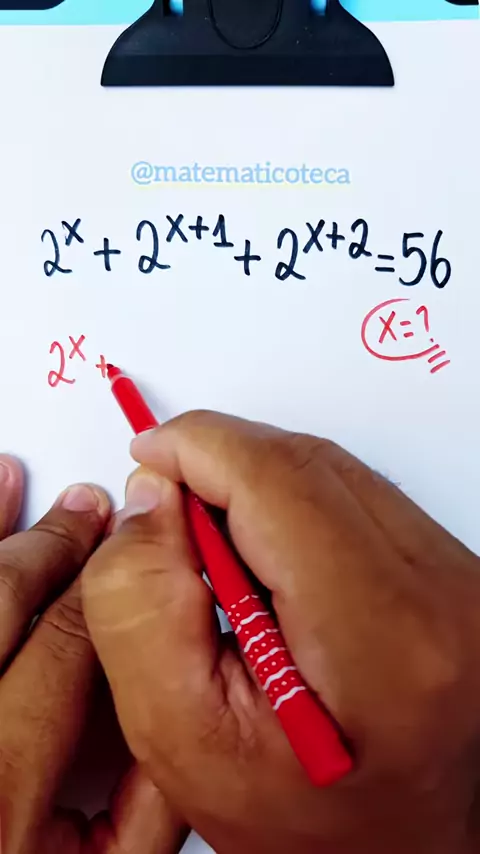 @matematicoteca
2^x + 2^{x+1} + 2^{x+2} = 56
x=?
2^x +